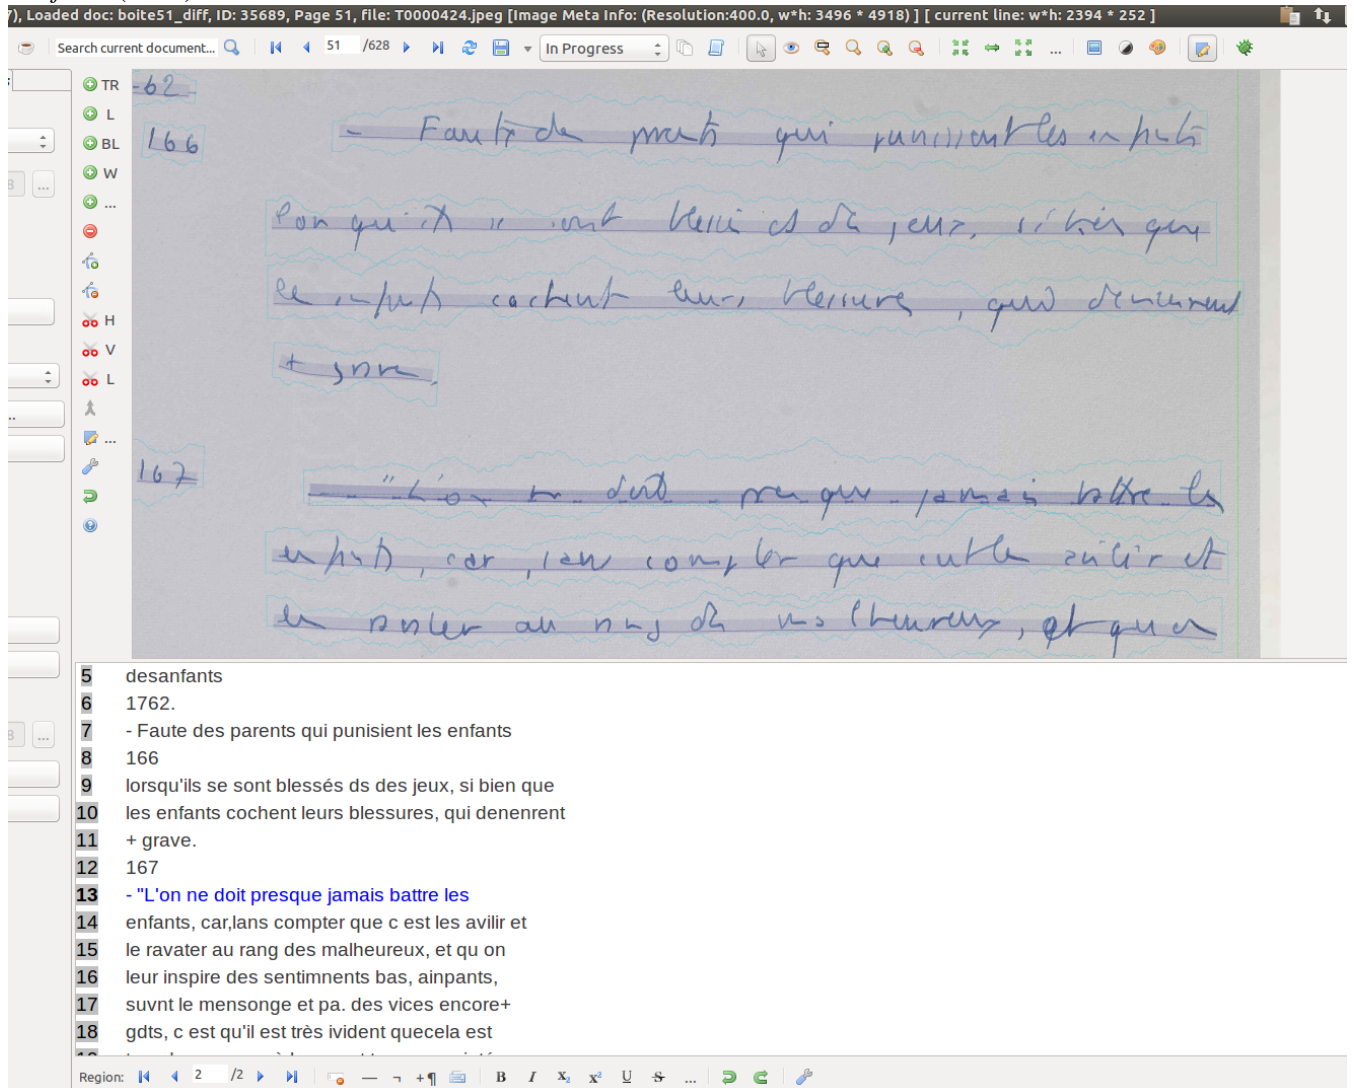 7), Loaded doc: boite51_diff, ID: 35689, Page 51, file: T0000424.jpeg [Image Meta Info: (Resolution:400.0, w*h: 3496 * 4918) ] [ current line: w*h: 2394 * 252 ]
Search current document... 51 /628 In Progress ...
TR
L
BL
W
...
H
V
L
...
-62
166 - Faute des parents qui punissent les enfants
lorsqu'ils se sont blessés ds des jeux, si bien que
les enfants cachent leurs blessures, qui demeurent
+ grave.
167 - "L'on ne doit presque jamais battre les
enfants, car, sans compter que c'est les avilir et
les ravaler au rang des malheureux, et qu'on
5 desanfants
6 1762.
7 - Faute des parents qui punisient les enfants
8 166
9 lorsqu'ils se sont blessés ds des jeux, si bien que
10 les enfants cochent leurs blessures, qui denenrent
11 + grave.
12 167
13 - "L'on ne doit presque jamais battre les
14 enfants, car,lans compter que c est les avilir et
15 le ravater au rang des malheureux, et qu on
16 leur inspire des sentimnents bas, ainpants,
17 suvnt le mensonge et pa. des vices encore+
18 gdts, c est qu'il est très ivident quecela est
Region: 2 /2 B I X₂ X² U S ...